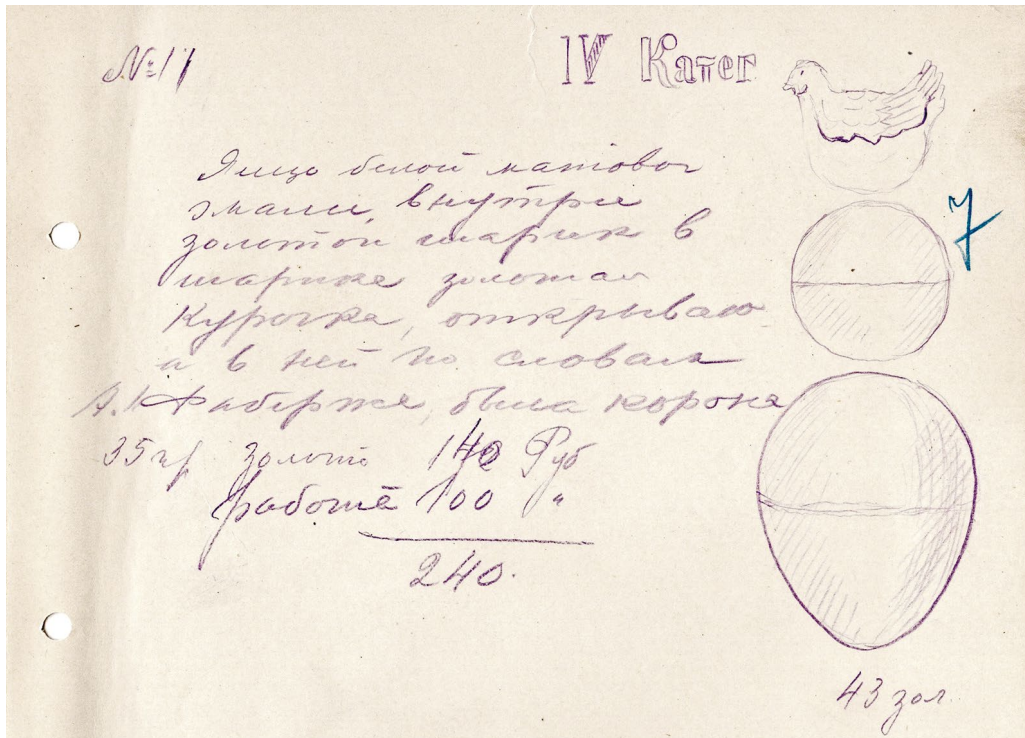 № 11
IV Катег
7
Яицо белой матовой
эмали, внутри
золотой шарик в
шарике золотая
Курочка, открываю
а в ней по словам
А. К Фаберже, была корона
35 гр Золото 140 Руб
работа 100 "
240.
43 зол.